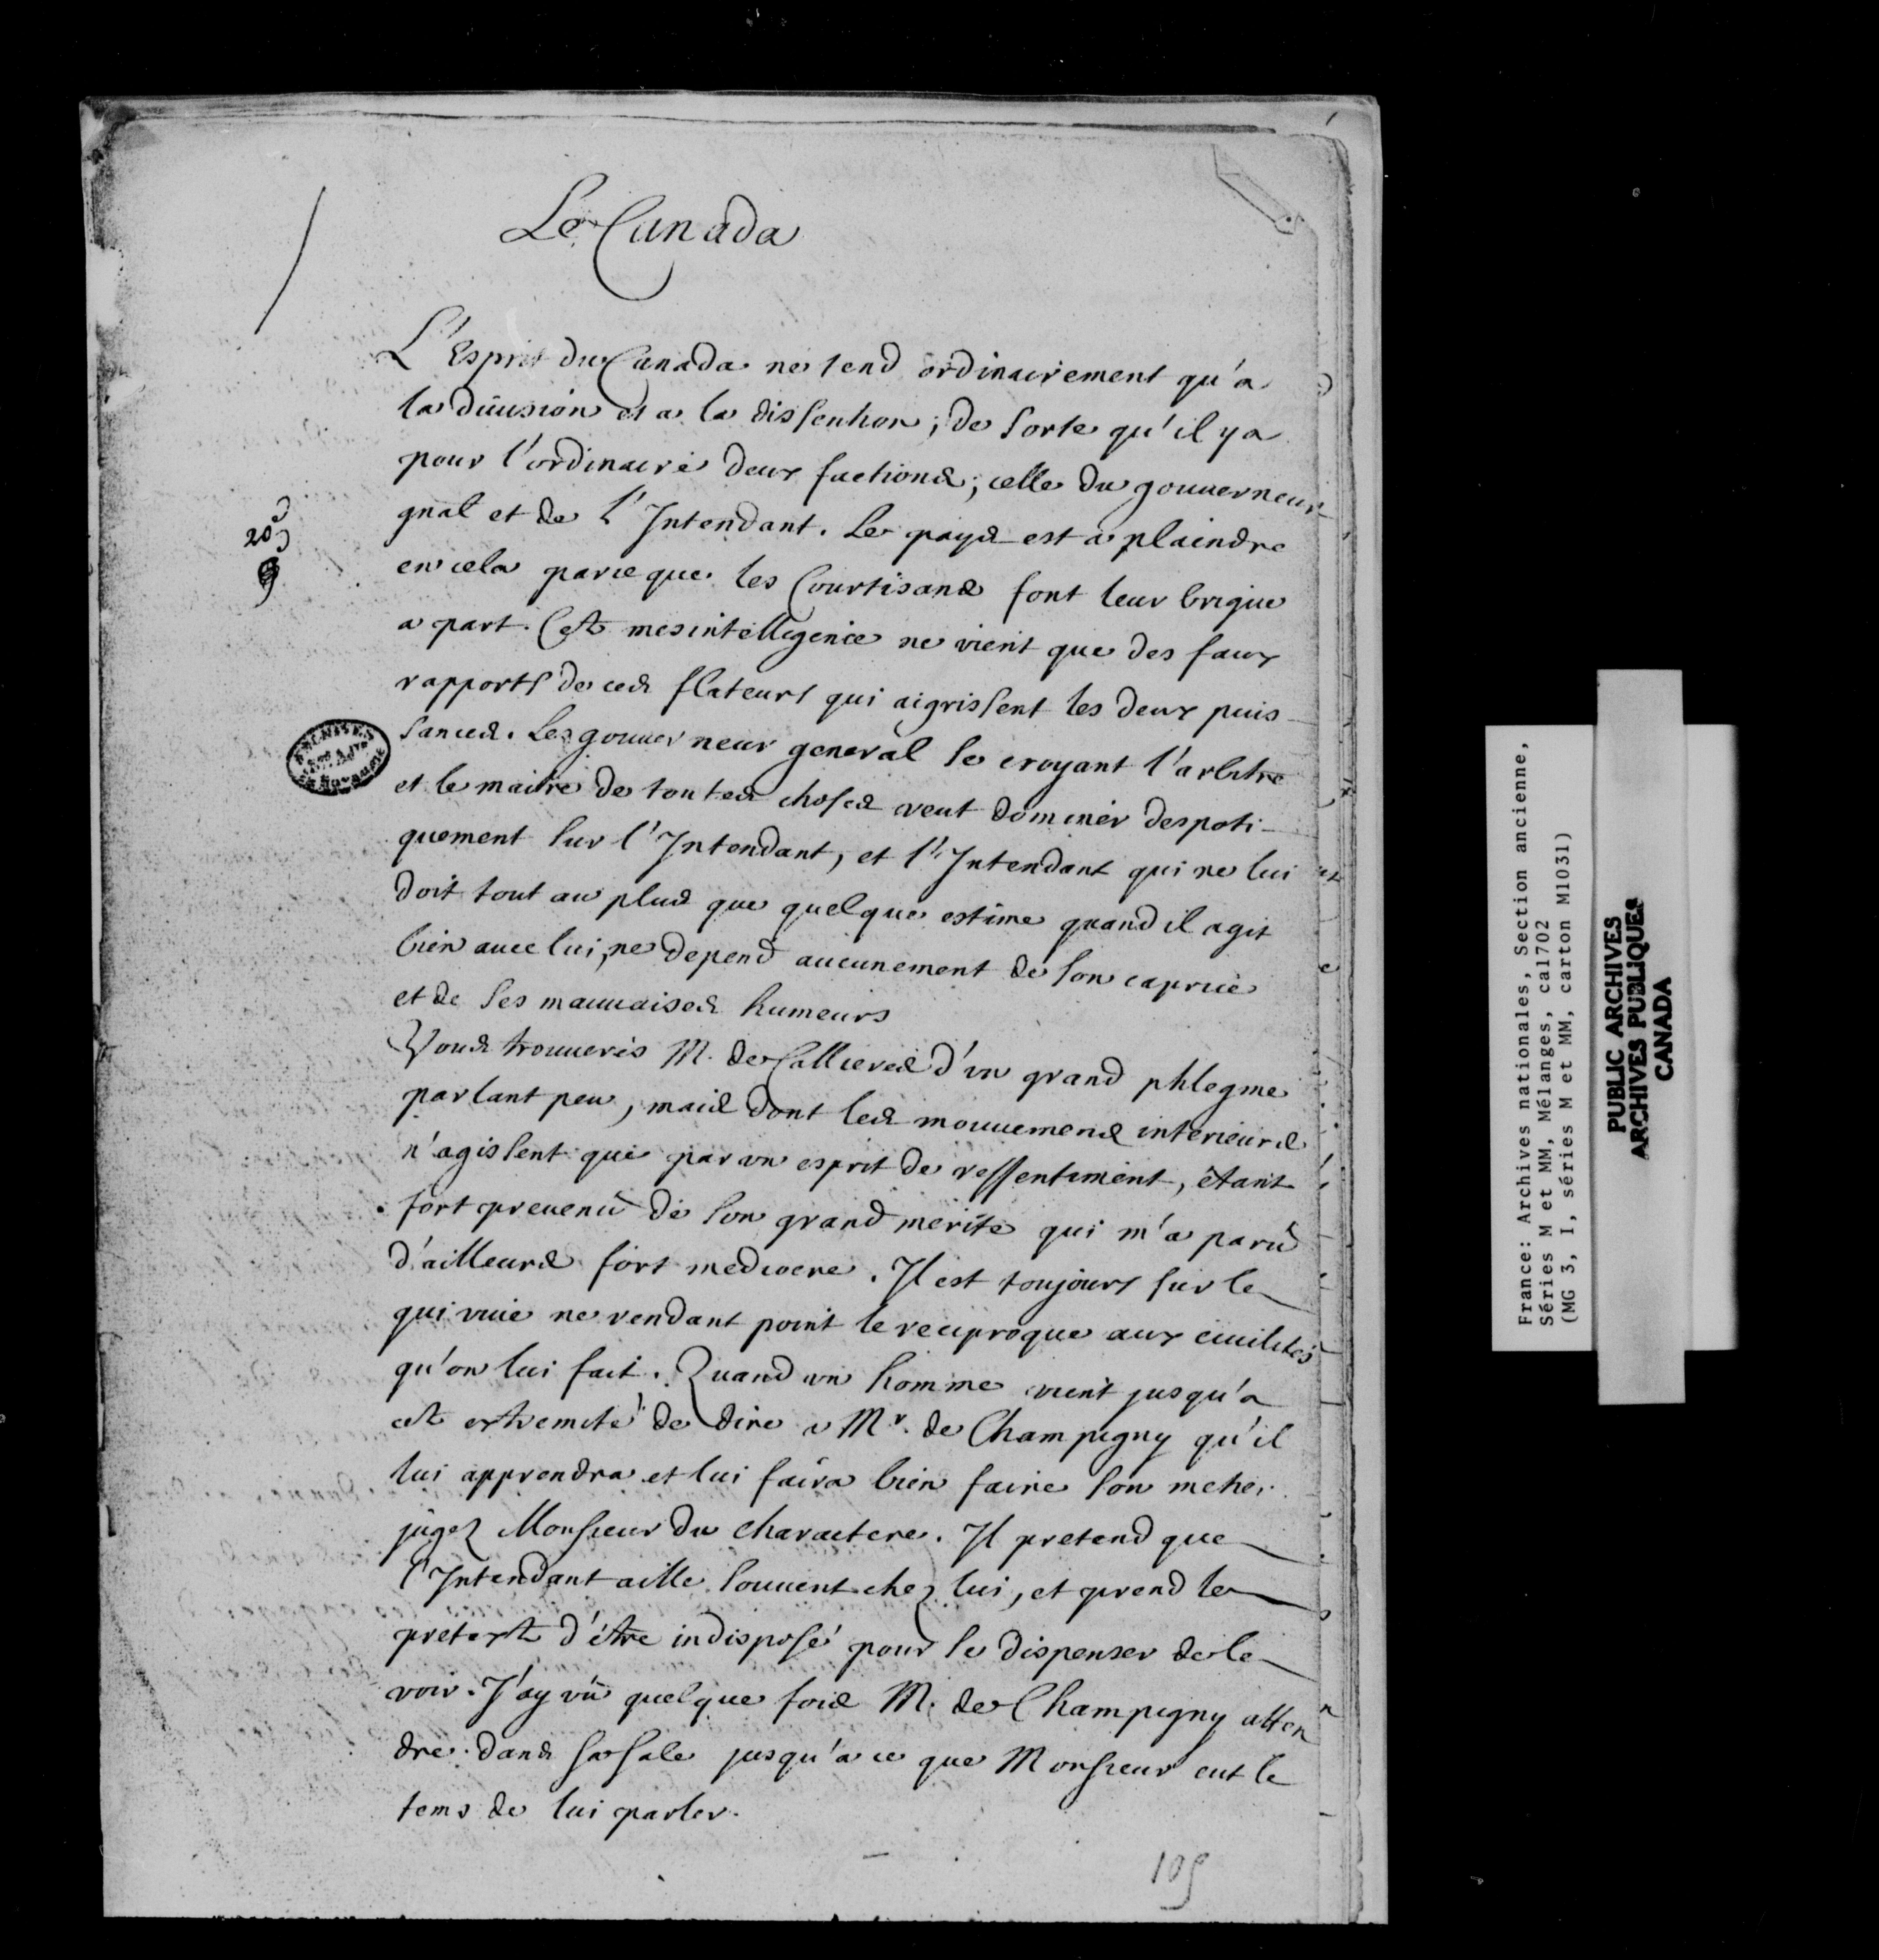 Le Canada
L'Esprit du Canada ne tend ordinairement qu'a
la diuision et a la dissention; de sorte qu'il y a
pour l'ordinaire deux factions; celle du gouuerneur
gnal et de l'Intendant. Le pays est a plaindre
en cela parce que les Courtisans font leur brigue
a part. Cette mesintelligence ne vient que des faux
rapports de ces flateurs qui aigrissent les deux puis-
sances. Le gouuerneur general se croyant l'arbitre
et le maitre de toutes choses veut dominer despoti-
quement sur l'Intendant, et l'Intendant qui ne lui
doit tout au plus que quelque estime quand il agit
bien auec lui, ne depend aucunement de son caprice
et de ses mauuaises humeurs
Vous trouueres M. de Callieres d'vn grand phlegme
parlant peu, mais dont les mouuemens interieurs
n'agissent que par vn esprit de ressentiment, étant
fort preuenû de son grand merite qui m'a parû
d'ailleurs fort mediocre. Il est toujours sur le
qui viue ne rendant point le reciproque aux ciuilités
qu'on lui fait. Quand vn homme vient jusqu'a
cette extremité de dire a Mr. de Champigny qu'il
lui apprendra et lui faira bien faire son metier
jugez Monsieur du charactere. Il pretend que
l'Intendant aille souuent chez lui, et prend le
pretexte d'étre indisposé pour se dispenser de le
voir. J'ay vû quelque fois M. de Champigny atten
dre dans sa sale jusqu'a ce que Monsieur eut le
tems de lui parler.
109
France: Archives nationales, Section ancienne,
Séries M et MM, Mélanges, ca1702
(MG 3, I, séries M et MM, carton M1031)
PUBLIC ARCHIVES
ARCHIVES PUBLIQUES
CANADA